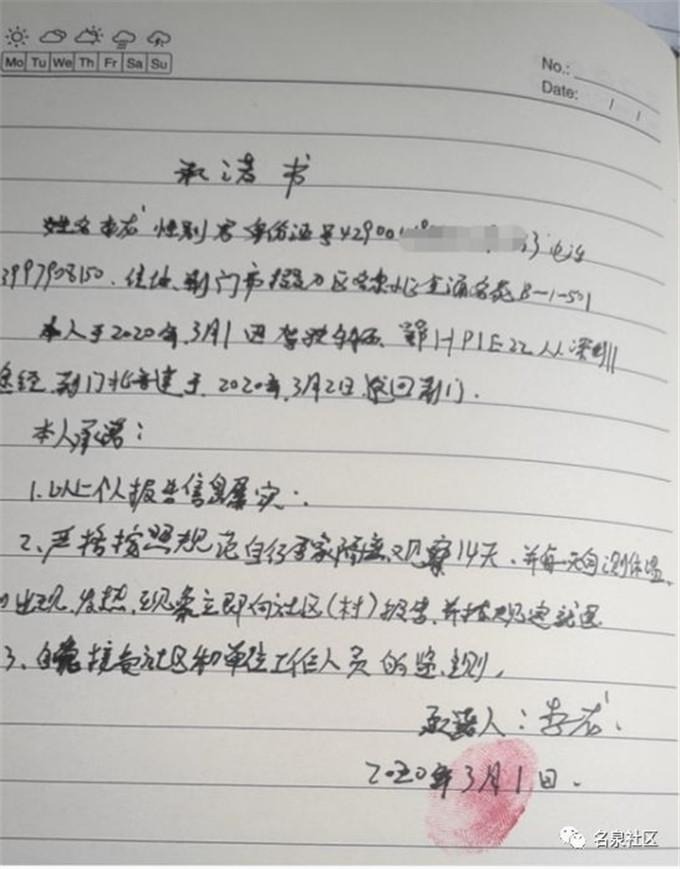 Mo Tu We Th Fr Sa Su
No.:
Date: / /
承诺书
姓名李龙 性别男 身份证号42900 电话
3997908150.住址.荆门市掇刀区名泉社区 B-1-501
本人于2020年.3月1日驾驶车辆.鄂HP1E22从深圳
途经.荆门北高速于.2020年.3月2日返回荆门.
本人承诺:
1.以上个人报告信息属实.
2、严格按照规范自行居家隔离.观察14天.并每天自测体温.
出现.发热.现象立即向社区(村)报告.并按规定就医
3、自觉接受社区和单位工作人员的监测.
承诺人:李龙.
2020年3月1日.
名泉社区